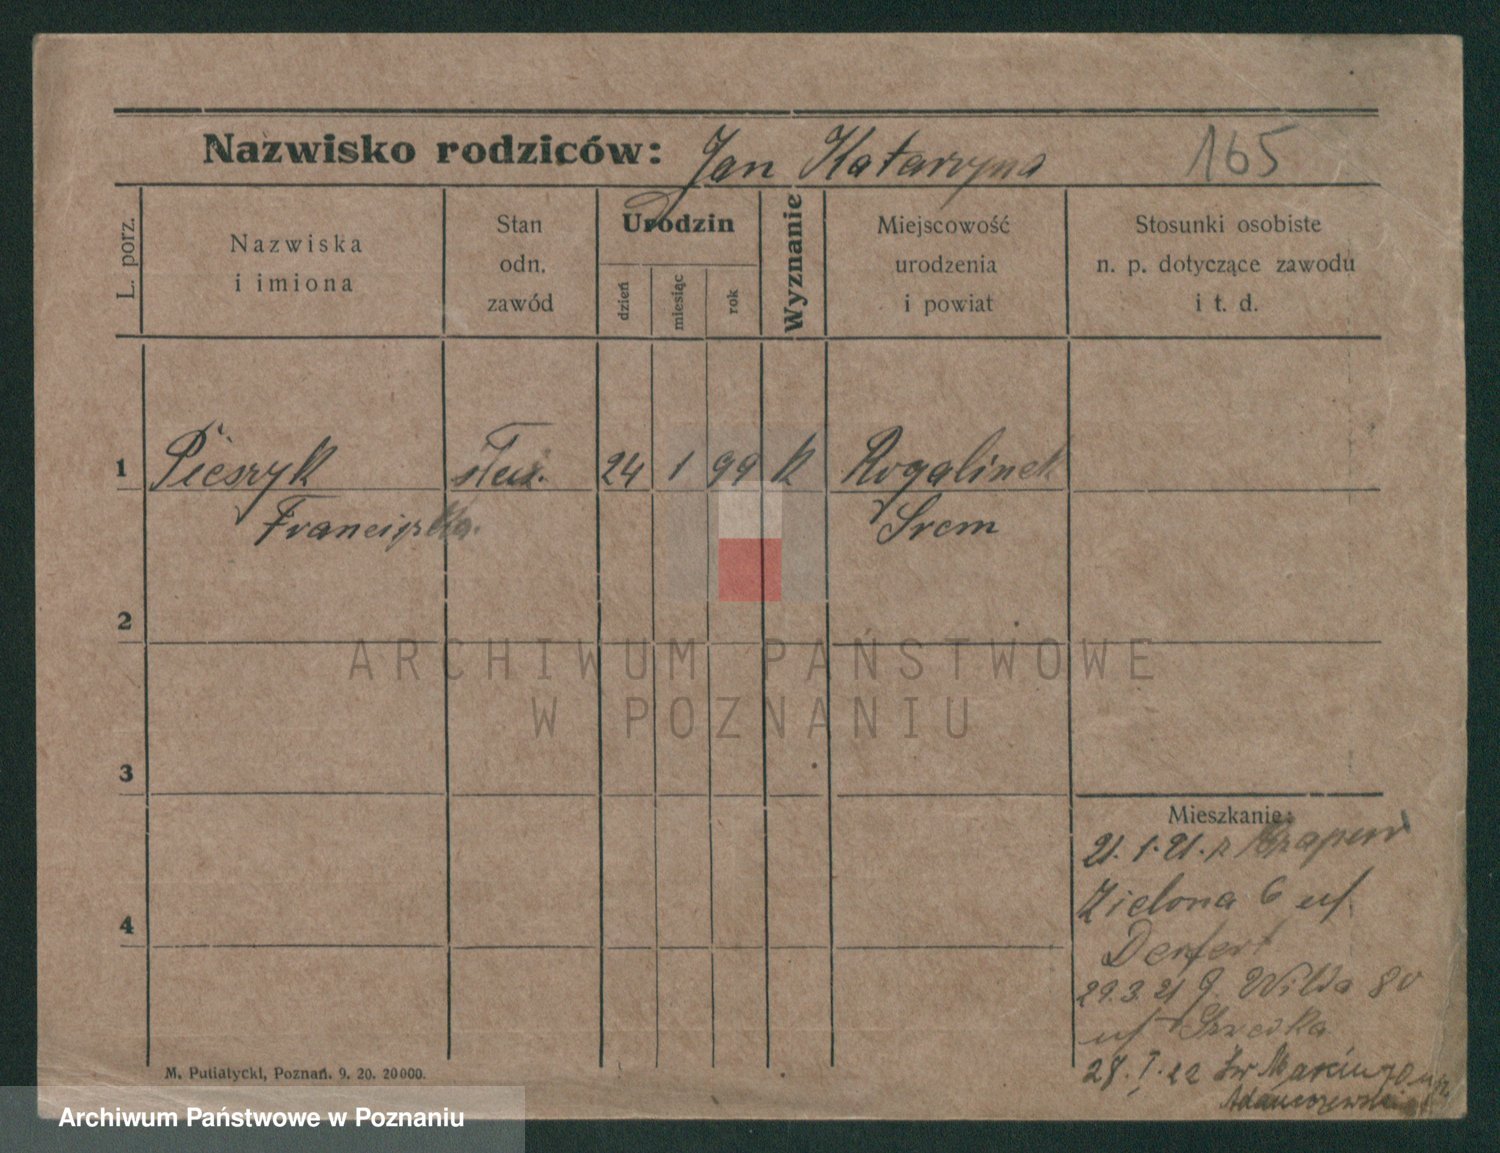 Nazwisko rodziców: Jan Katarzyna 165
L. porz.
Nazwiska
i imiona
Stan
odn.
zawód
Urodzin
dzień
miesiąc
rok
Wyznanie
Miejscowość
urodzenia
i powiat
Stosunki osobiste
n. p. dotyczące zawodu
i t. d.
1 Pieszyk służ. 24 1 99 k Rogalinek
Franciszka Srem
2
ARCHIWUM PAŃSTWOWE
W POZNANIU
3
Mieszkanie:
21. 1. 21. z
4
Zielona 6 u/
29.3.21 G. Wilda 80
u/
28. I. 22 Św Marcin
M. Putiatycki, Poznań. 9. 20. 20000.
Archiwum Państwowe w Poznaniu